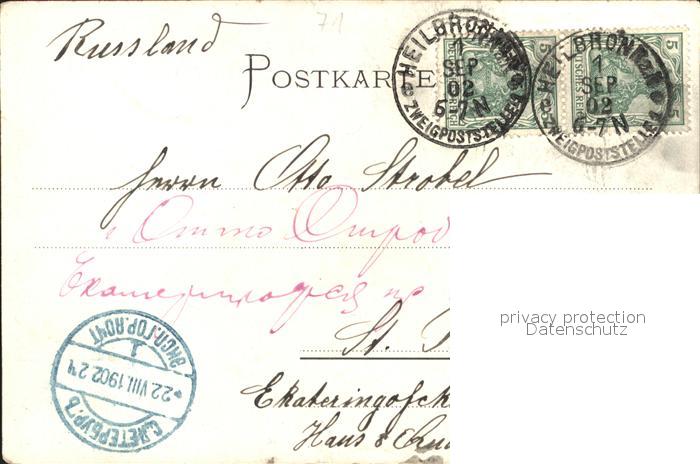 Russland
71
POSTKARTE
HEILBRONN
1
SEP
02
6-7N
ZWEIGPOSTSTELLE
5
DEUTSCHES REICH
HEILBRONN
1
SEP
02
6-7N
ZWEIGPOSTSTELLE 1
5
5
Herrn Otto Strobel
Отто
St.
privacy protection
Datenschutz
ГОР.ПОЧТ
1
22.VIII.1902
С.ПЕТЕРБУРГЪ
Haus 8